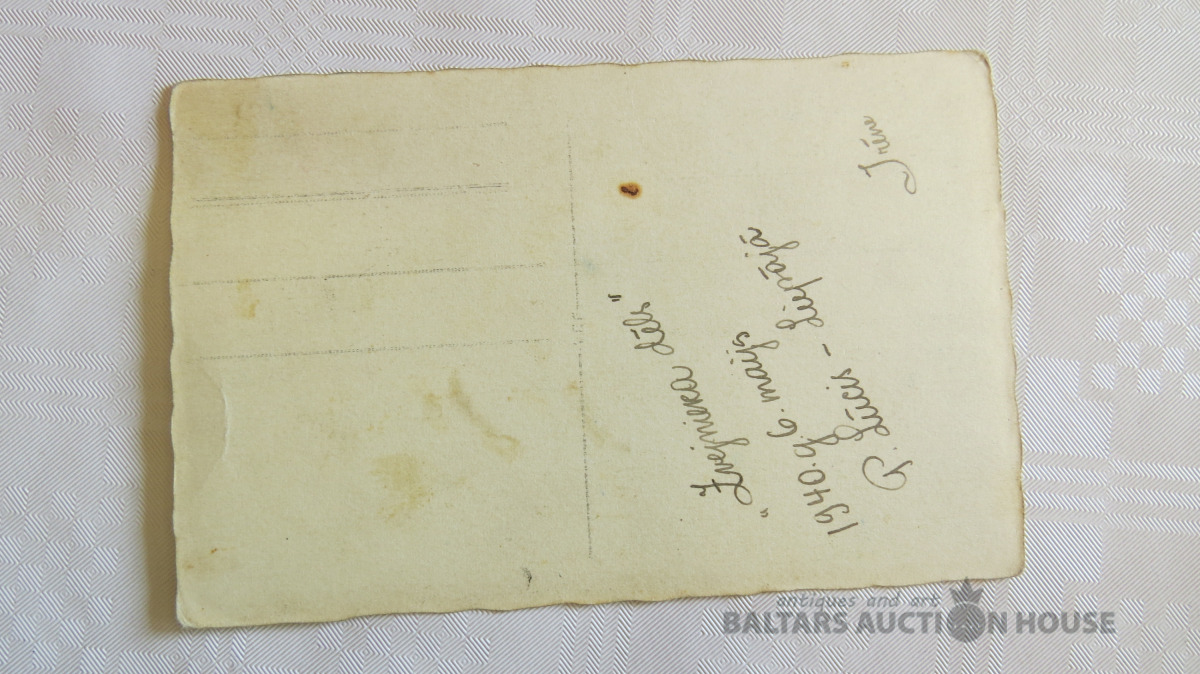 "Zvejnieka dēls"
1940. g. 6. maijs
P. Lūcis - Liepājā
Irēne
antiques and art
BALTARS AUCTION HOUSE